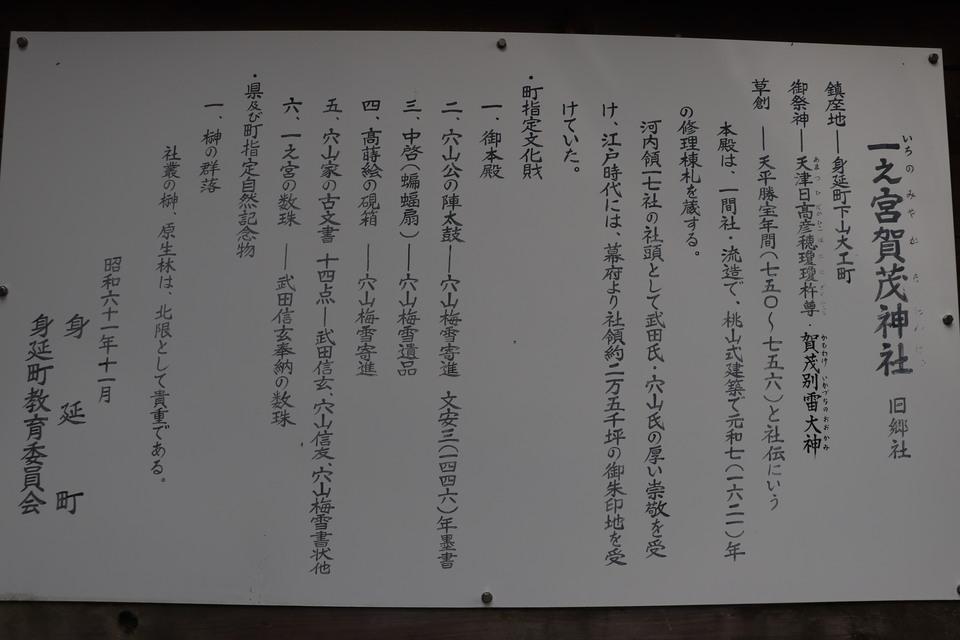 一之宮賀茂神社 旧郷社
いちのみやかもじんじゃ
鎮座地――身延町下山大工町
御祭神――天津日高彦穂瓊瓊杵尊・賀茂別雷大神
かもわけいかづちのおおかみ
草創――天平勝宝年間(七五〇〜七五六)と社伝にいう
本殿は、一間社・流造で、桃山式建築で元和七(一六二一)年
の修理棟札を蔵する。
河内領一七社の社頭として武田氏・穴山氏の厚い崇敬を受
け、江戸時代には、幕府より社領約二万五千坪の御朱印地を受
けていた。
・町指定文化財
一、御本殿
二、穴山公の陣太鼓――穴山梅雪寄進 文安三(一四四六)年墨書
三、中啓(蝙蝠扇)――穴山梅雪遺品
四、高蒔絵の硯箱――穴山梅雪寄進
五、穴山家の古文書 十四点――武田信玄、穴山信友、穴山梅雪書状他
六、一之宮の数珠――武田信玄奉納の数珠
・県及び町指定自然記念物
一、榊の群落
社叢の榊、原生林は、北限として貴重である。
昭和六十一年十一月
身延町
身延町教育委員会